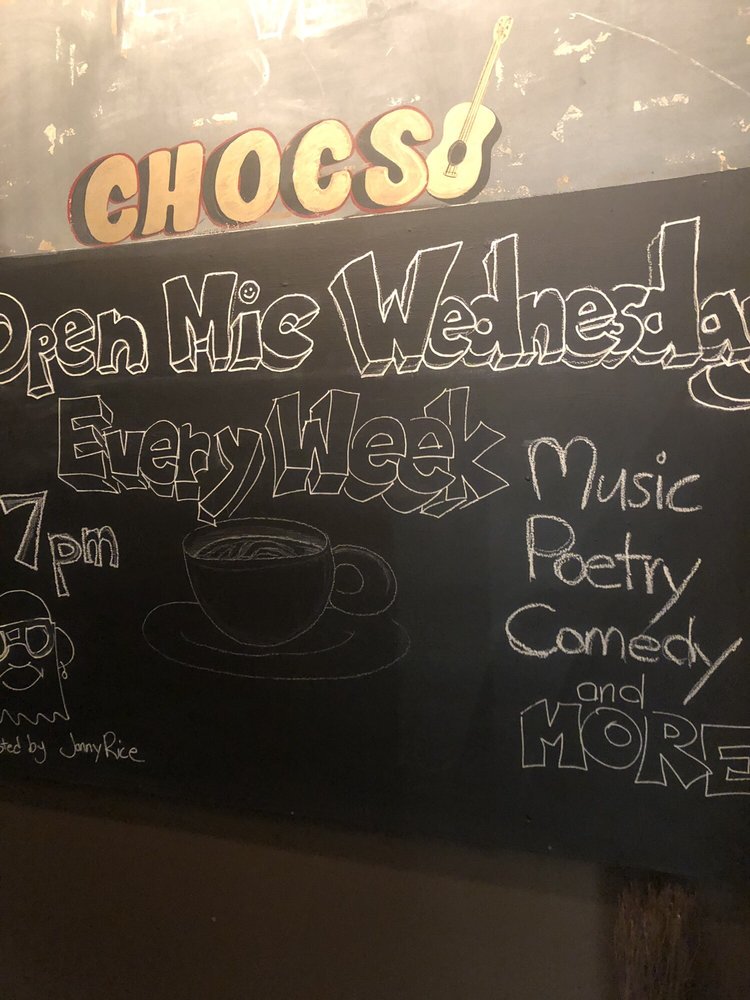 CHOCS
Open Mic Wednesday
Every Week
7pm
Music
Poetry
Comedy
and
MORE
sted by Jonny Rice